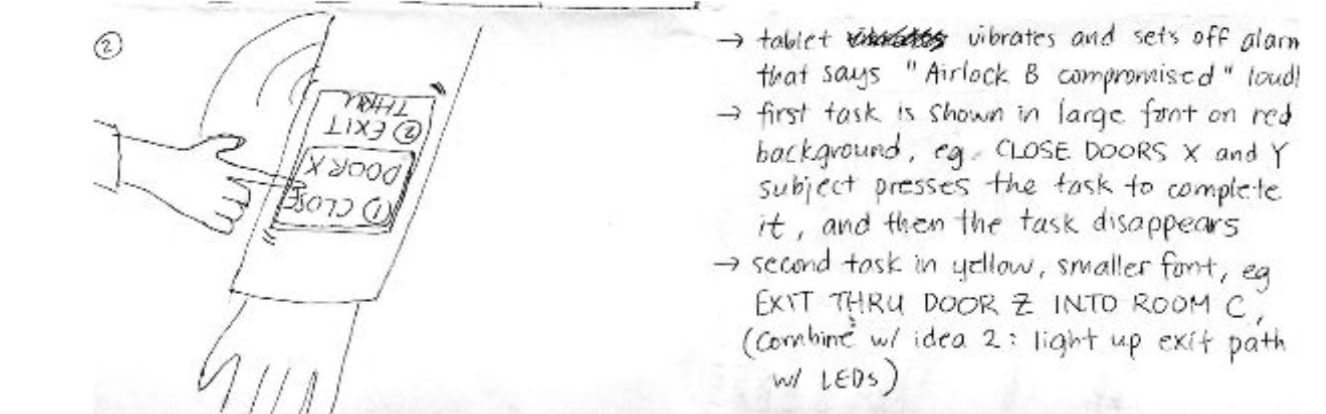 ②
① CLOSE
DOOR X
② EXIT
THRU
→ tablet vibrates and sets off alarm
that says "Airlock B compromised" loudl
→ first task is shown in large font on red
background, eg. CLOSE DOORS X and Y
subject presses the task to complete
it, and then the task disappears
→ second task in yellow, smaller font, eg
EXIT THRU DOOR Z INTO ROOM C,
(combine w/ idea 2: light up exit path
w/ LEDs)